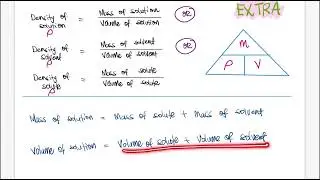 EXTRA
Density of solution = Mass of solution / Volume of solution OR
ρ
Density of solvent = Mass of solvent / Volume of solvent OR
ρ
Density of solute = Mass of solute / Volume of solute
ρ
M
ρ V
Mass of solution = Mass of solute + Mass of solvent
Volume of solution = Volume of solute + Volume of solvent